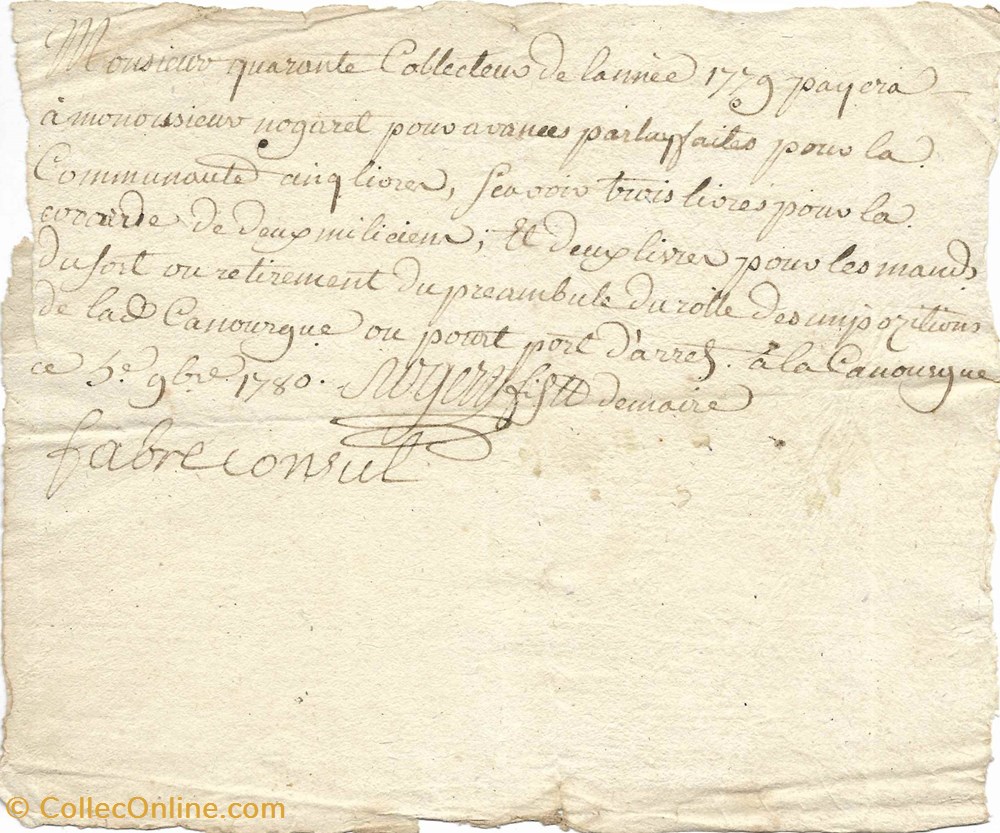 Monsieur quarante Collecteur de lannée 1779 payera
à monousieur nogaret pour avances par luy faites pour la
Communauté cinq livres, sçavoir trois livres pour la
cocarde de deux miliciens, Et deux livres pour les mands
du sort ou retirement du preambule du rolle des impozitions
de lad Canourgue ou pour port d'arret. à la Canourgue
ce 5e 9bre 1780. demaire
fabre consul
© CollecOnline.com